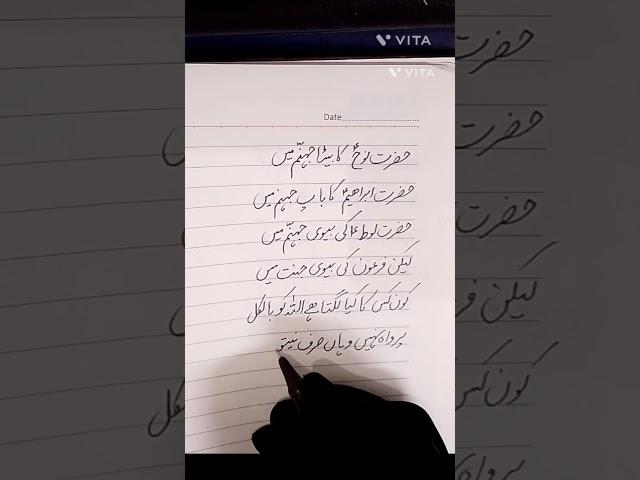 VITA
VITA
Date
حضرت نوحؑ کا بیٹا جہنّم میں
حضرت ابراھیمؑ کا باپ جہنم میں
حضرت لوطؑ کی بیوی جہنّم میں
لیکن فرعون کی بیوی جنت میں
کون کس کا کیا لگتا ہے اللّٰہ کو بالکل
پرواہ نہیں وہاں صرف نیتو